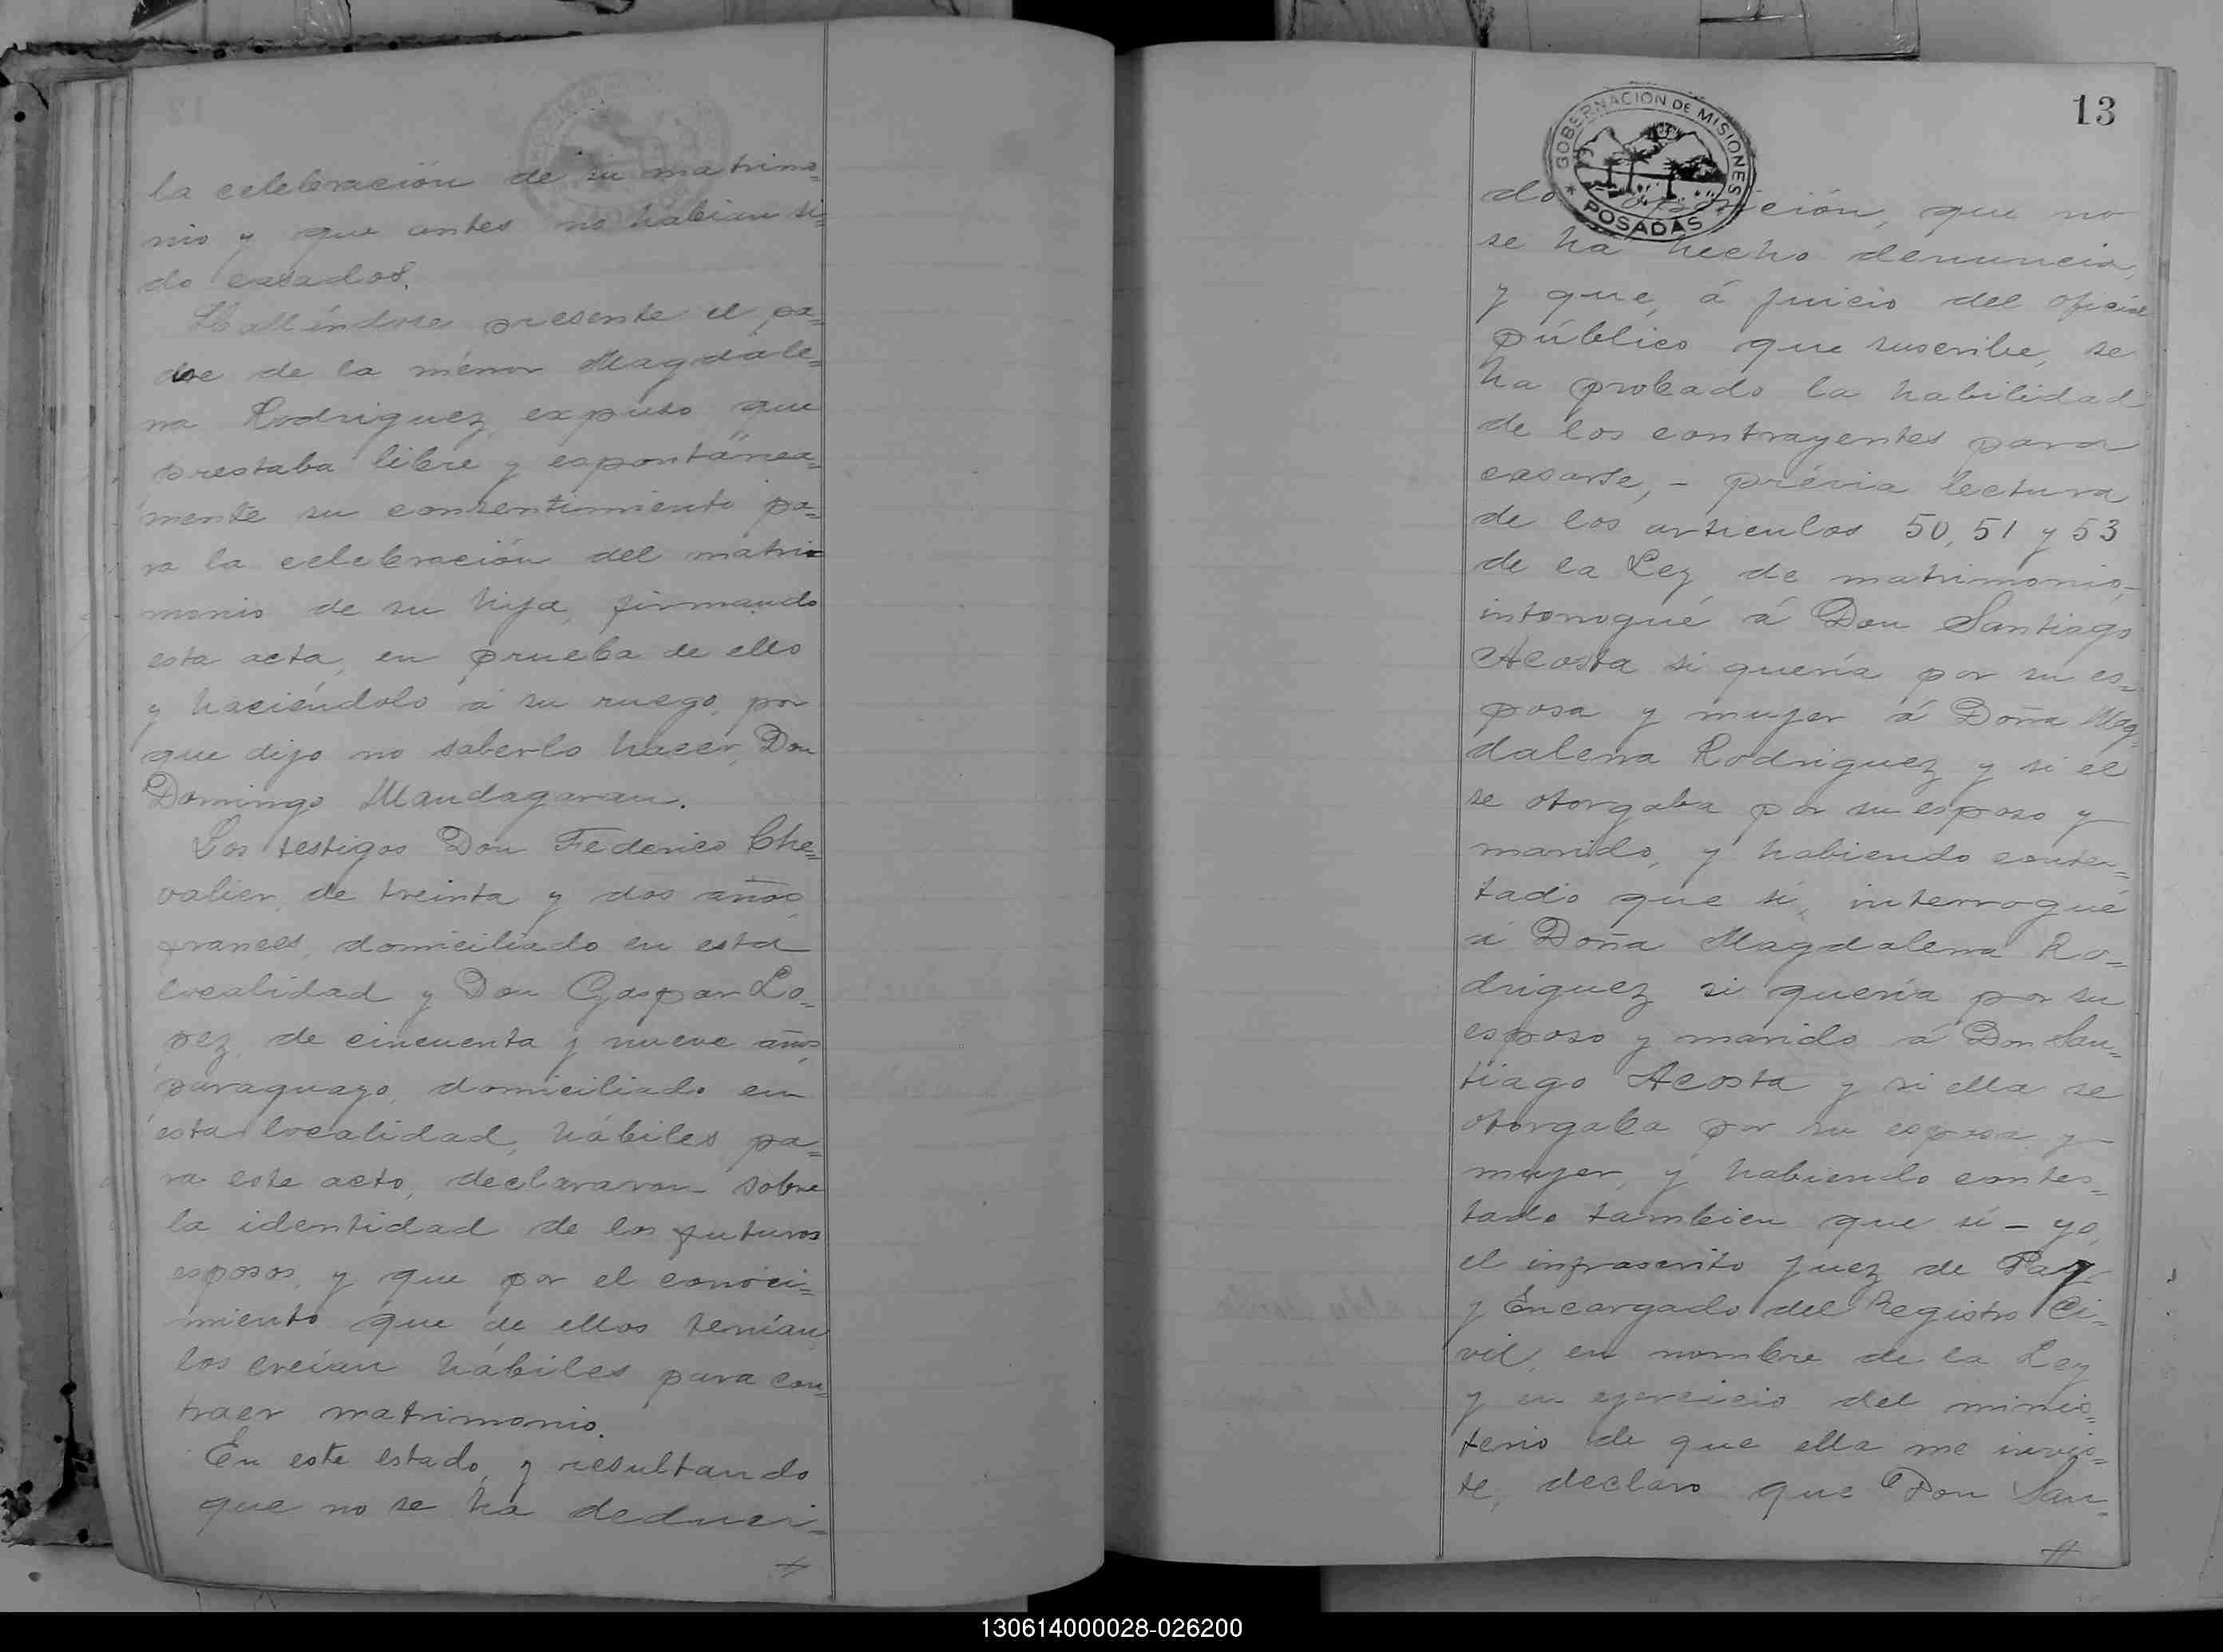 la celebración de su matrimo=
nio y que antes no habian si=
do casados.
Hallándose presente el pa=
dre de la menor Magdale=
na Rodriguez expuso que
prestaba libre y espontánea=
mente su consentimiento pa=
ra la celebración del matri=
monio de su hija, firmando
esta acta, en prueba de ello
y haciéndolo á su ruego, por
que dijo no saberlo hacer, Don
Domingo Mandagaran.
Los testigos Don Federico Che=
valier, de treinta y dos años,
frances, domiciliado en esta
localidad y Don Gaspar Lo=
pez, de cincuenta y nueve años,
paraguayo, domiciliado en
esta localidad, hábiles pa=
ra este acto, declararon sobre
la identidad de los futuros
esposos, y que por el conoci=
miento que de ellos tenian,
los creian hábiles para con=
traer matrimonio.
En este estado, y resultando
que no se ha deduci=
13
GOBERNACION DE MISIONES
* POSADAS
do oposición, que no
se ha hecho denuncia,
y que, á juicio del oficial
público que suscribe, se
ha probado la habilidad
de los contrayentes para
casarse, - prévia lectura
de los articulos 50, 51 y 53
de la Ley de matrimonio,-
interrogué á Don Santiago
Acosta si quería por su es=
posa y mujer á Doña Mag=
dalena Rodriguez y si el
se otorgaba por su esposo y
marido, y habiendo contes=
tado que si, interrogué
á Doña Magdalena Ro=
driguez si quería por su
esposo y marido á Don San=
tiago Acosta y si ella se
otorgaba por su esposa y
mujer, y habiendo contes=
tado tambien que si - yo,
el infrascrito Juez de Paz
y Encargado del Registro Ci=
vil, en nombre de la Ley
y en ejercicio del minis=
terio de que ella me invis=
te, declaro que Don San=
130614000028-026200